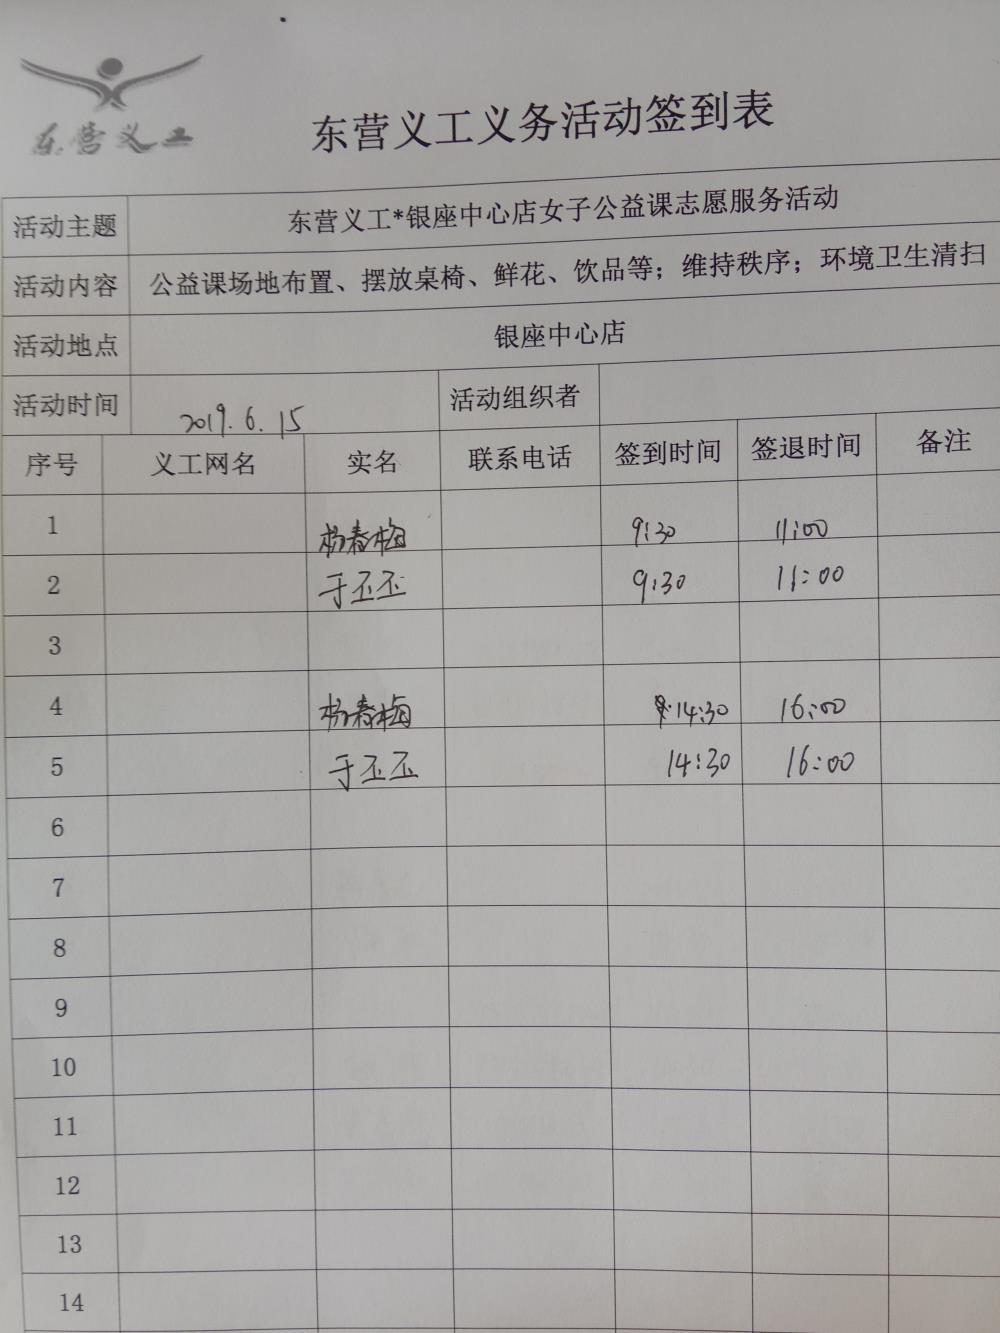 东营义工
东营义工义务活动签到表
活动主题 东营义工*银座中心店女子公益课志愿服务活动
活动内容 公益课场地布置、摆放桌椅、鲜花、饮品等；维持秩序；环境卫生清扫
活动地点 银座中心店
活动时间 2019.6.15 活动组织者
序号 义工网名 实名 联系电话 签到时间 签退时间 备注
1 杨春梅 9:30 11:00
2 于丕丕 9:30 11:00
3
4 杨春梅 14:30 16:00
5 于丕丕 14:30 16:00
6
7
8
9
10
11
12
13
14